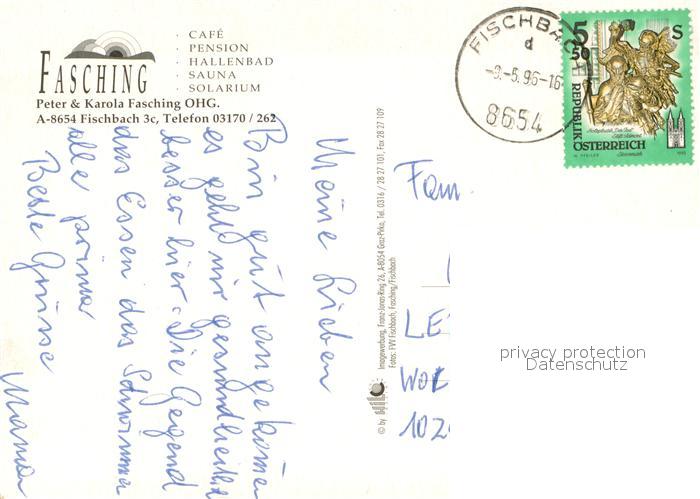 FASCHING
· CAFÉ
· PENSION
· HALLENBAD
· SAUNA
· SOLARIUM
Peter & Karola Fasching OHG.
A-8654 Fischbach 3c, Telefon 03170 / 262
Meine Lieben
Bin gut angekommen
es geht mir gesundheitlich
besser hier. Die Gegend
das Essen das Schwimmen
alle prima
Beste Grüsse
Mama
© by
Imagewerbung, Franz-Jonas-Ring 26, A-8054 Graz-Pirka, Tel. 0316 / 28 27 101, Fax 28 27 109
Fotos: FVV Fischbach, Fasching/Fischbach
FISCHBA
d
-9.-5.96-16
8654
5 50 S
REPUBLIK
ÖSTERREICH
Steiermark
Fam.
LE
WOL
102
privacy protection
Datenschutz